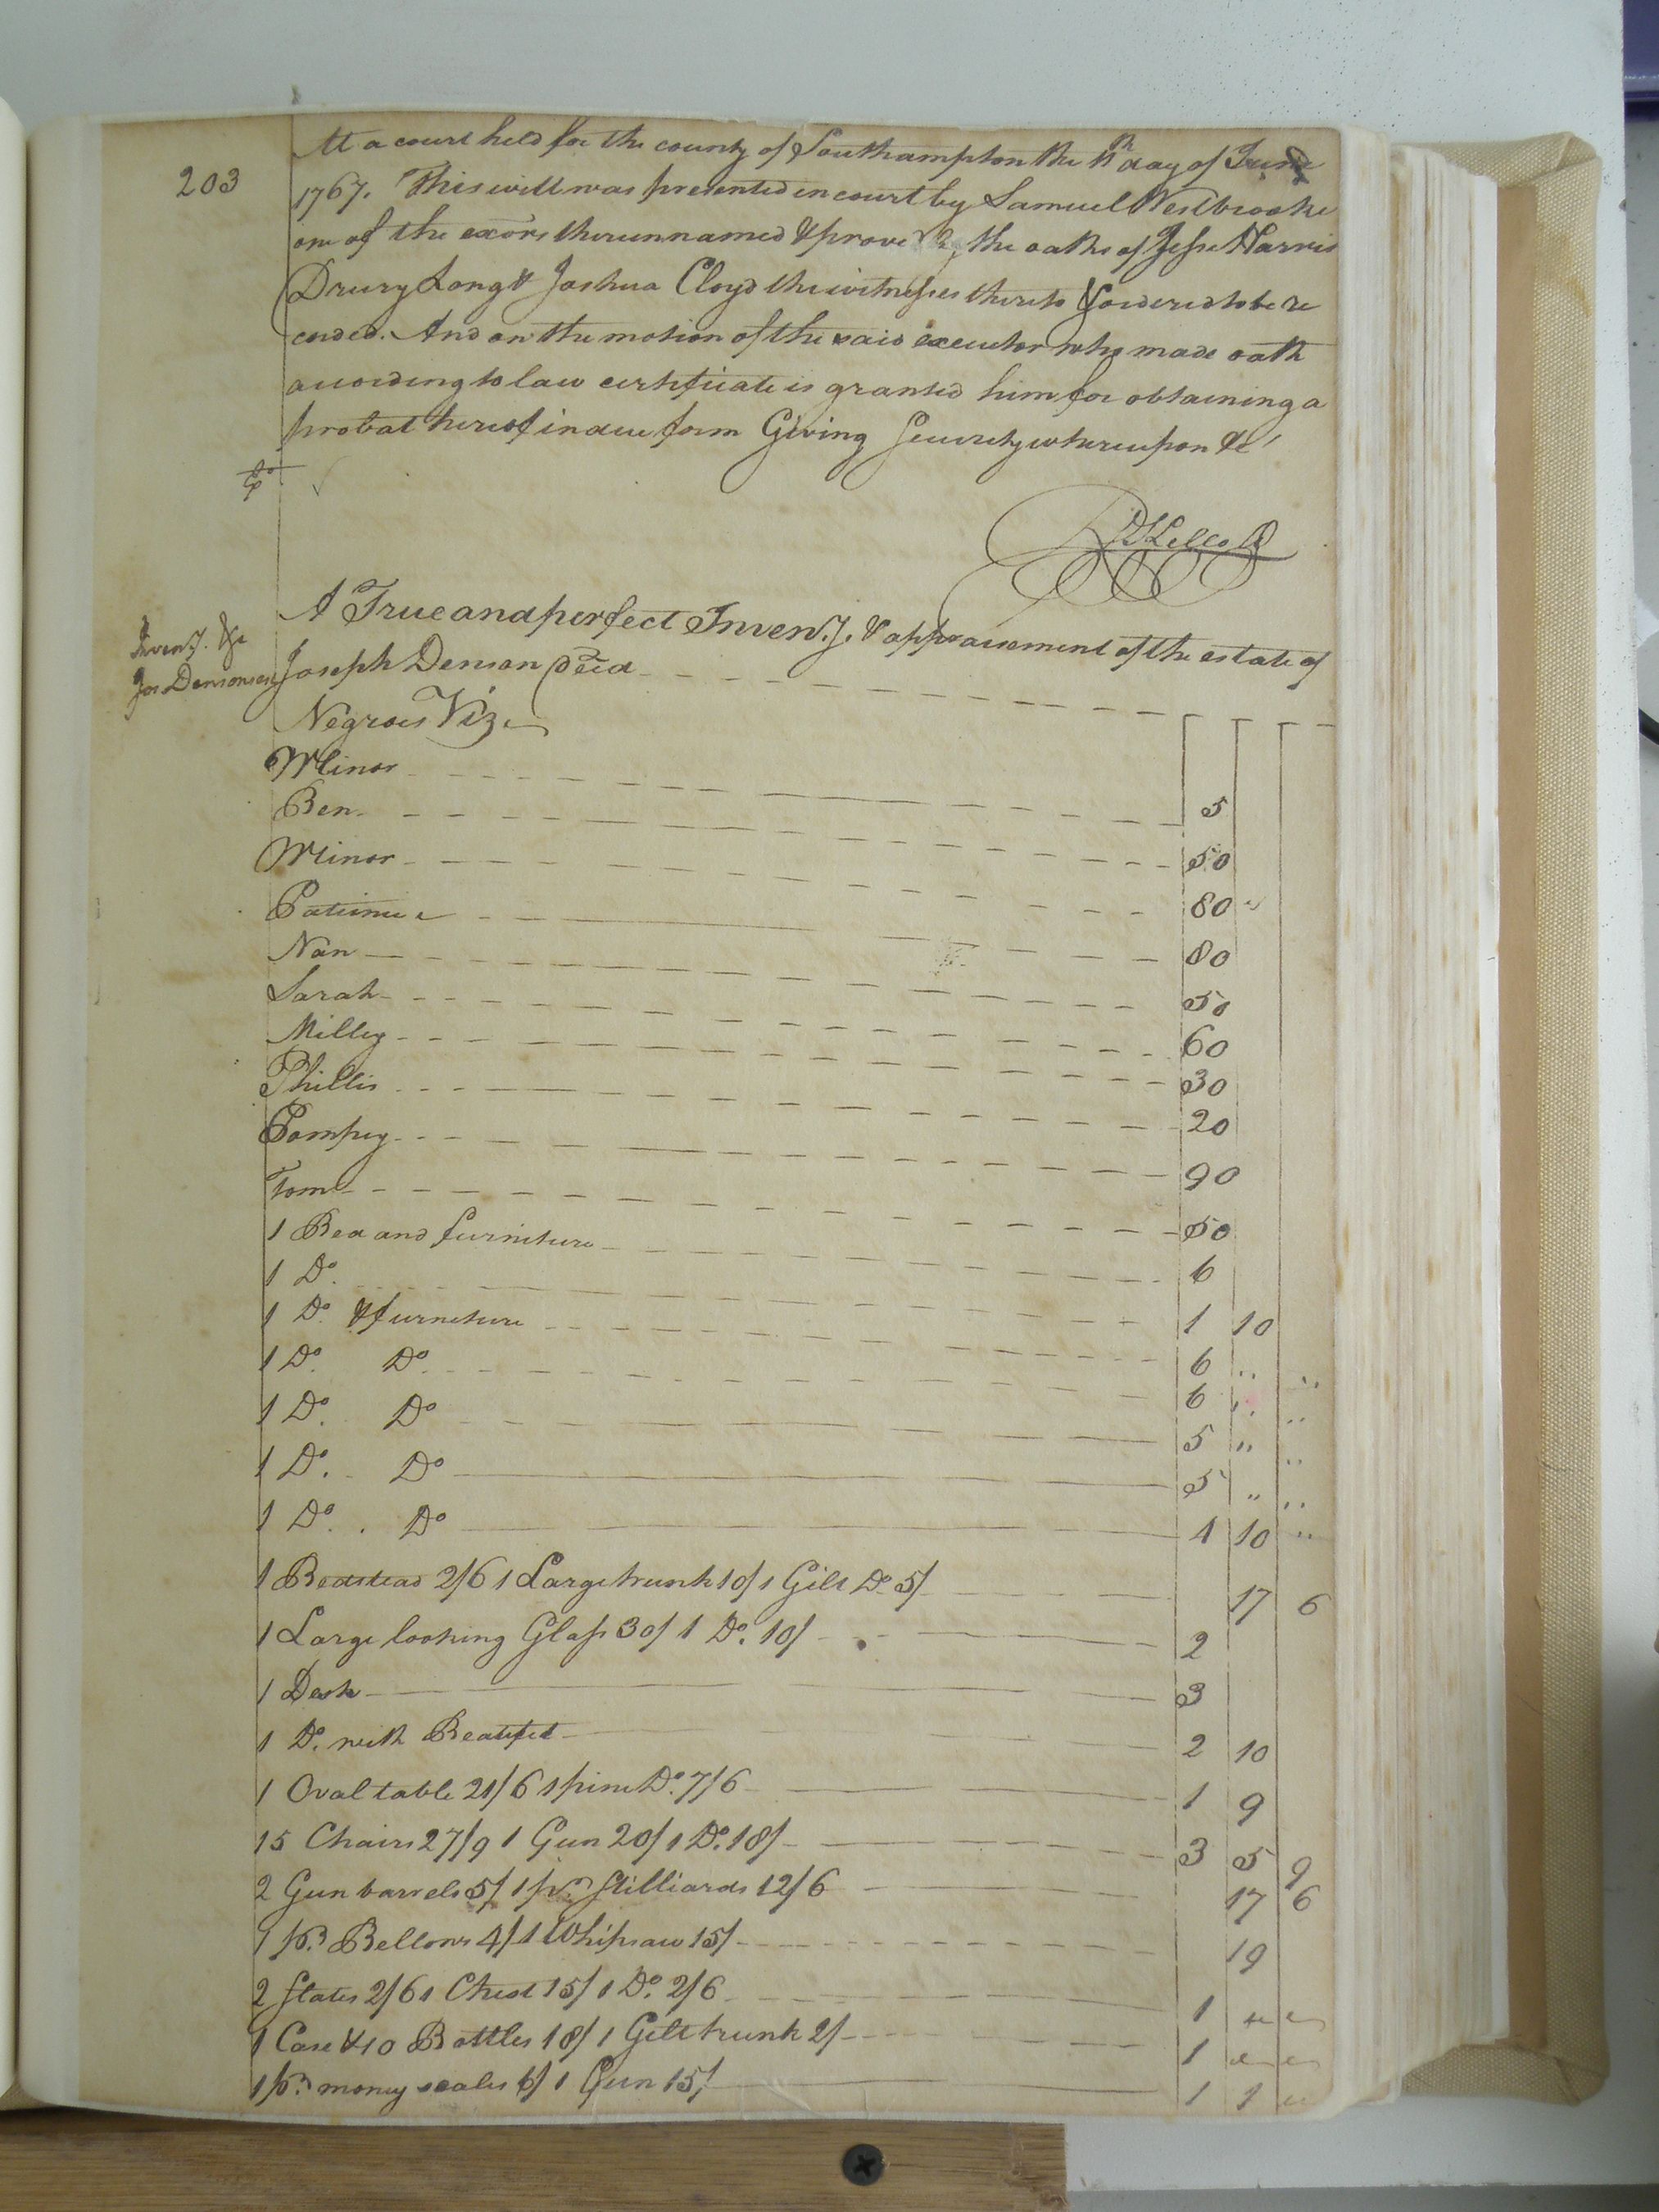 203
At a court held for the county of Southampton the 11th day of June
1767. This will was presented in court by Samuel Westbrooke
one of the exors therein named & proved by the oaths of Jesse Harris
Drury Long & Joshua Cloyd the witnesses thereto & ordered to be re
corded. And on the motion of the said executor who made oath
according to law certificate is granted him for obtaining a
probat thereof in due form Giving Security whereupon &c
A True and perfect Inven.y. & appraisement of the estate of
Inven.y. &c
Jos Densons est
Joseph Denson Decd
Negroes Viz.
Minor 5
Ben 50
Minor 80
Patience 80
Nan 50
Sarah 60
Milley 30
Phillis 20
Pompey 90
Tom 50
1 Bed and furniture 6
1 Do. 1 10
1 Do. & furniture 6 " "
1 Do. Do. 6 " "
1 Do. Do 5 " "
1 Do. Do 5 " "
1 Do. Do 4 10 "
1 Bedstead 2/6 1 Large trunk 10/ 1 Gilt Do. 5/ 17 6
1 Large looking Glass 30/ 1 Do. 10/ 2
1 Desk 3
1 Do. with 2 10
1 Oval table 21/6 1 pine Do. 7/6 1 9
15 Chairs 27/9 1 Gun 20/ 1 Do. 18/ 3 5 9
2 Gun barrels 5/ 1 pr. Stilliards 12/6 17 6
1 pr. Bellows 4/ 1 Whipsaw 15/ 19
2 Slates 2/6 1 Chest 15/ 1 Do. 2/6 1 " "
1 Case & 10 Bottles 18/ 1 Gilt trunk 2/ 1 " "
1 pr. money scales 6/ 1 Gun 15/ 1 1 "